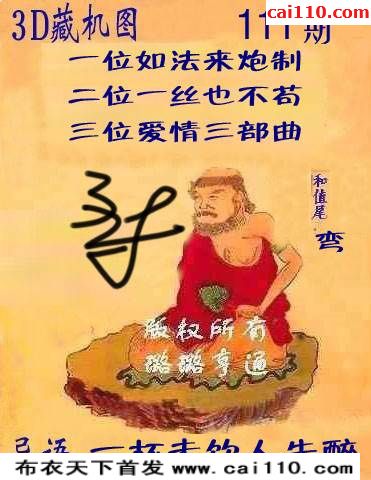 cai110.com
3D藏机图 111期
一位如法来炮制
二位一丝也不苟
三位爱情三部曲
和值尾
弯
版权所有
璐璐亨通
一杯未饮人先醉
布衣天下首发 www.cai110.com